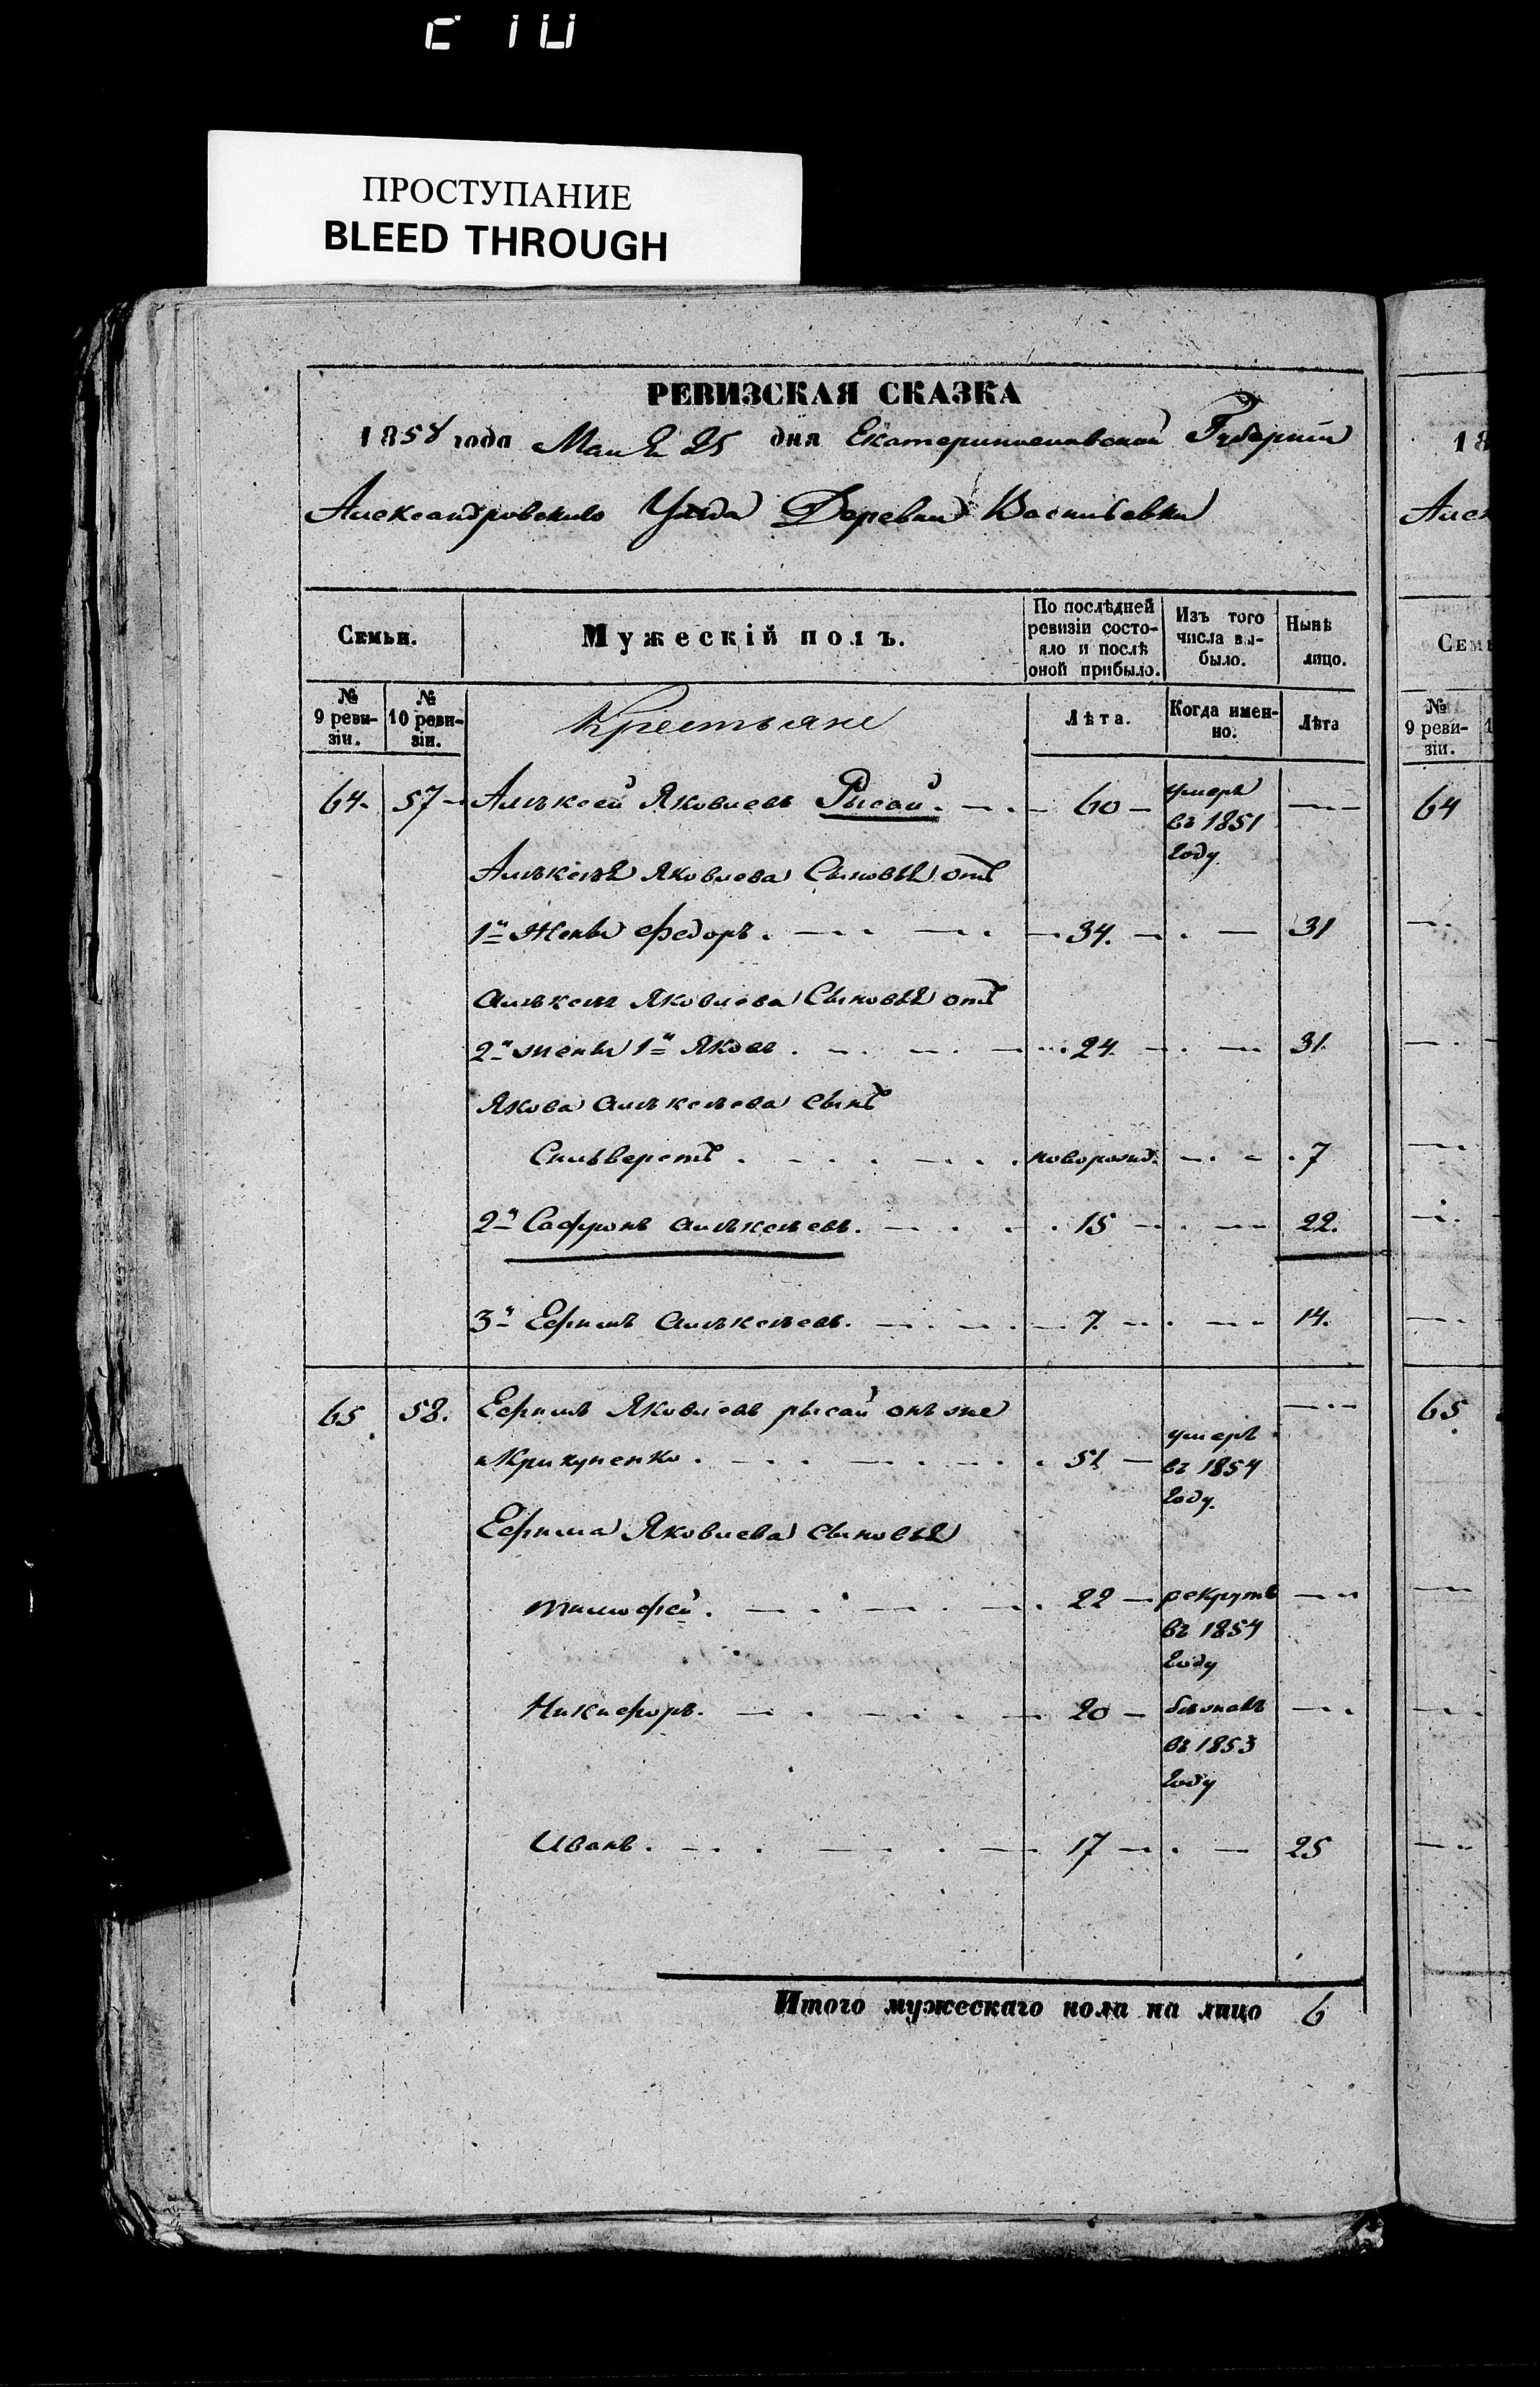 ПРОСТУПАНИЕ
BLEED THROUGH
РЕВИЗСКАЯ СКАЗКА
1858 года Маія 25 дня Екатеринославской Губерніи
Александровскаго Уезда Деревни Васильевки
Семьи.
Мужескій полъ.
По послѣдней ревизіи состояло и послѣ оной прибыло.
Изъ того числа выбыло.
Нынѣ лицо.
№ 9 ревизіи.
№ 10 ревизіи.
Крестьяне
Лѣта.
Когда именно.
Лѣта
64. 57 Алѣксей Яковлевъ Рысай. 60 умеръ въ 1851 году
Алѣксѣя Яковлева Сыновья отъ
1й Жены Федоръ. 34. 31
Алѣксѣя Яковлева Сыновья отъ
2й жены 1й Яковъ. 24. 31.
Якова Алѣксѣева сынъ
Сильверстъ. новорожд. 7
2й Сафронъ Алѣксѣевъ. 15 22.
3й Ефимъ Алѣксѣевъ. 7. 14.
65 58. Ефимъ Яковлевъ рысай онъ же
и Крикуненко. 51 умеръ въ 1854 году.
Ефима Яковлева сыновья
тимофей. 22 рекрутъ въ 1854 году
Никифоръ. 20 въ 1853 году
Иванъ. 17 25
Итого мужескаго пола на лицо 6
18
Алек
Сем
№ 9 ревизіи.
64
65